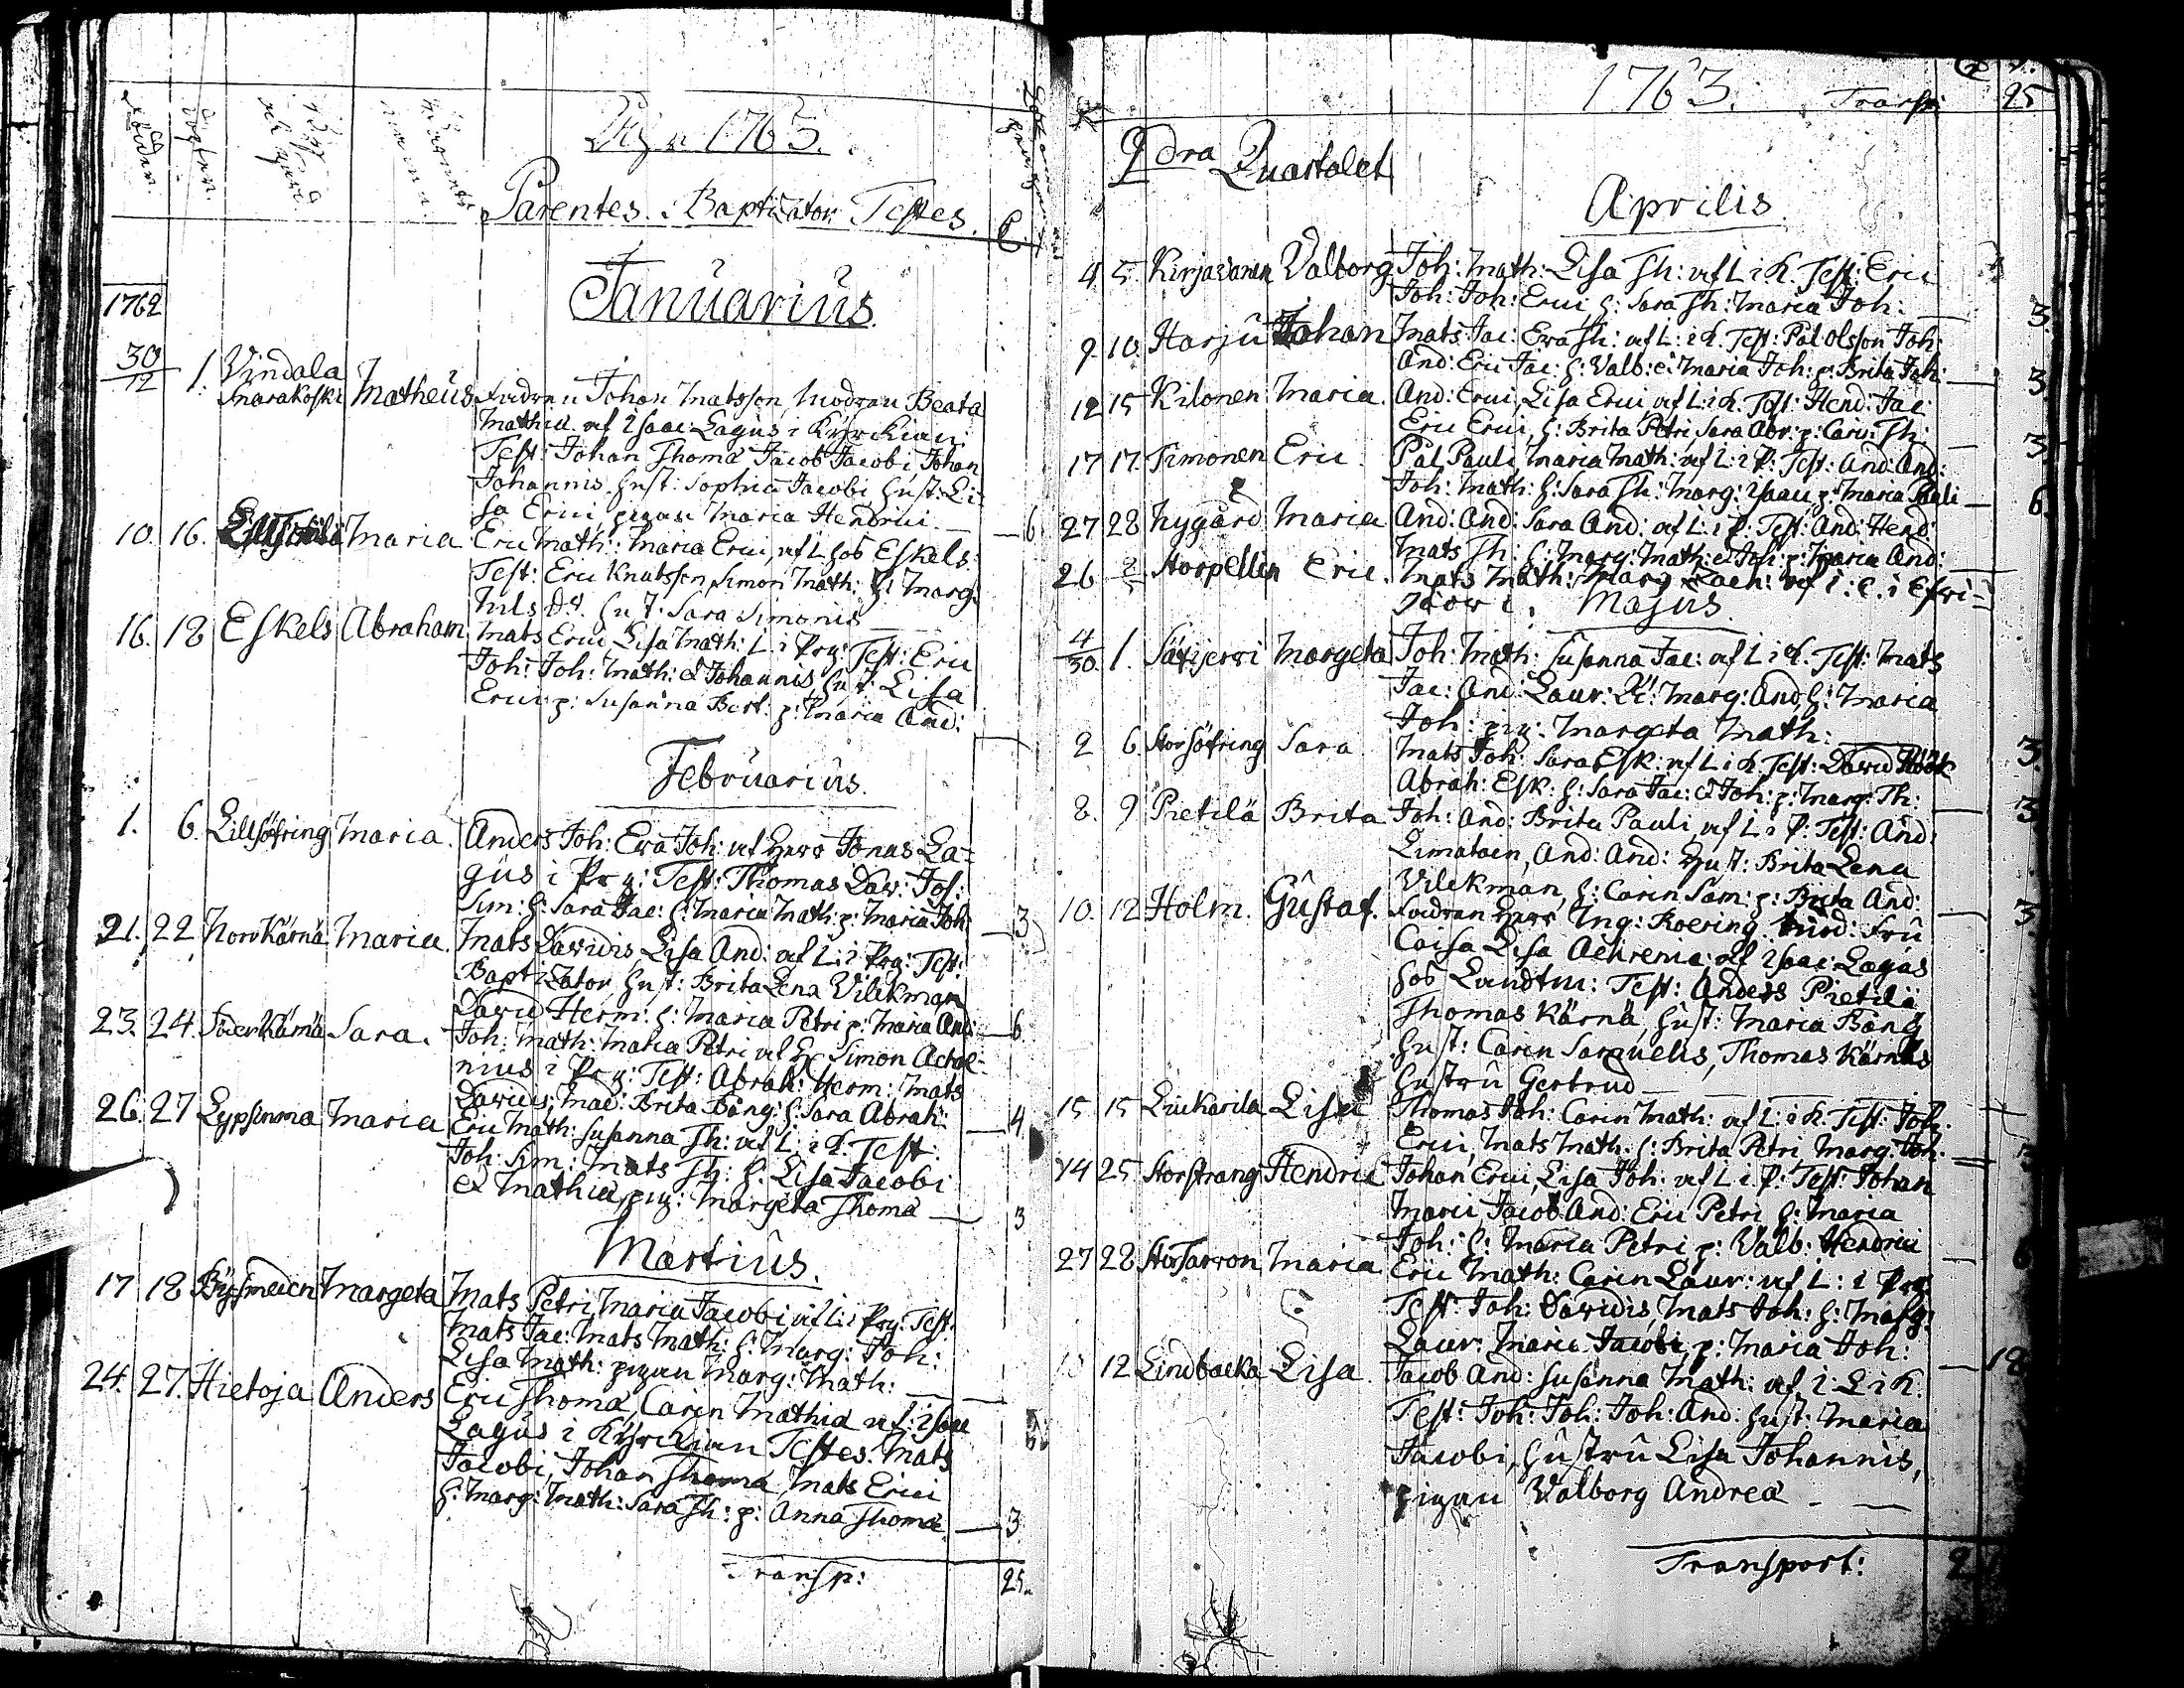 1763.
Parentes. Baptizator Testes.
Januarius.
1762
30/12 1. Vindala Matheus Fadren Johan Matsson, Modren Beata
Snarakoski
Mathiæ af Isaac Lagus i Kyrckian
Test: Johan Thomæ Jacob Jacobi Johan
Johannis Hust: Sophia Jacobi Hust: Li-
sa Erici pigan Maria Hendrici — 6
10. 16. Maria Eric Math: Maria Erici, af L. hos Eskels.
Test: Eric Knutsson Simon Math: H: Marg:
Nils D. Hust: Sara Simonis
16. 18 Eskels Abraham Mats Erici Lisa Math: L i Prg: Test: Eric
Joh: Joh: Math: & Johannis Hust: Lisa
Erici p: Susanna Bert: p: Maria And:
Februarius.
1. 6. Lillsöfring Maria. Anders Joh: Eva Joh: af Herr Jonas La-
gus i Prg: Test: Thomas Dav: Jos:
Sim: H: Sara Jac: H: Maria Math: p: Maria Joh: — 3
21. 22 Norr Kärnä Maria. Mats Davidis Lisa And: af L: i Prg: Test:
Baptizator Hust: Brita Lena Vilckman
David Herm: H: Maria Petri p: Maria And: — 6
23. 24. Söder Kärnä Sara. Joh: Math: Maria Petri af H. Simon Achre-
nius i Prg: Test: Abrah: Herm: Mats
Davidis, Mad: Brita Bång: H: Sara Abrah: — 4.
26. 27 Lypsinma Maria Eric Math: Susanna Th: af L: i K. Test:
Joh: Sim: Mats Th: H: Lisa Jacobi
& Mathiæ, pig: Margeta Thomæ — 3
Martius.
17 18 Margeta Mats Petri, Maria Jacobi, af L: i Prg: Test:
Mats Jac: Mats Math: H: Marg: Joh:
Lisa Math: pigan Marg: Math: —
24. 27. Hietoja Anders Eric Thomæ, Carin Mathiæ af: Isaac
Lagus i Kyrckian Testes. Mats
Jacobi, Johan Thomæ, Mats Erici
H: Marg: Math: Sara Th: p: Anna Thomæ — 3
Transp: 25.
1763. Transp: 25
2dra Quartalet
Aprilis.
4 5. Kirjavainen Valborg Joh: Math: Lisa Th: af L i K. Test: Eric
Joh: Joh: Erici, H: Sara Th: Maria Joh: — 3.
9. 10. Harju Johan Mats Jac: Eva Th: af L: i K. Test: Pål Olsson Joh:
And: Eric Jac: H: Valb: & Maria Joh: p: Brita Joh: — 3.
12 15 Kilonen Maria. And: Erici, Lisa Erici, af L: i K. Test: Hend: Jac:
Eric Erici, H: Brita Petri Sara Abr: p: Carin Th: — 3
17 17. Timonen Eric. Pål Pauli Maria Math: af L: i P: Test: And: And:
Joh: Math: H: Sara Th: Marg: Isaaci p: Maria Pauli — 6.
27 28 Nygård Maria And: And: Sara And: af L: i P. Test: And: Hend:
Mats Th: H: Marg: Math: & Joh: p: Maria And: —
26 Storpellin Eric. Mats Math: Marg
Majus.
4/30. 1. Säxijerwi Margeta Joh: Math: Susanna Jac: af L i K. Test: Mats
Jac: And: Laur: H: Marg: And, H: Maria
Joh: pig: Margeta Math: — 3.
2 6 Storsöfring Sara Mats Joh: Sara Esk: af L i K. Test: David Höök
Abrah: Esk: H: Sara Jac: & Joh: p: Marg: Th: — 3
8. 9 Pietilä Brita Joh: And: Brita Pauli, af L i P: Test: And:
Limatain, And: And: Hust: Brita Lena
Vilckman, H: Carin Sam: p: Brita And: — 3
10. 12 Holm. Gustaf. Fadren Herr Ing: Roering. Mod: Fru
Caisa Lisa Achrenia af Isaac Lagus
hos Lundtm: Test: Anders Pietilä
Thomas Kärnä, Hust: Maria Bång
Hust: Carin Samuelis, Thomas Kärnäs
Hustru Gertrud
15 15 Lisa Thomas Joh: Carin Math: af L: i K. Test: Joh:
Erici, Mats Math. H: Brita Petri Marg: Joh. —
14 25 Storstrang Hendric Johan Erici, Lisa Joh: af L i P: Test: Johan
Marci Jacob And: Eric Petri H: Maria
Joh: H: Maria Petri p: Valb: Hendrici —
27 28 Maria Eric Math: Carin Laur: af L: i Prg
Test: Joh: Davidis, Mats Joh: H: Marg:
Laur: Maria Jacobi, p: Maria Joh: —
12 Lindbacka Lisa. Jacob And: Susanna Math: af I: L i K.
Test: Joh: Joh: Joh: And: Hust: Maria
Jacobi, Hustru Lisa Johannis,
pigan Valborg Andreæ —
Transport: